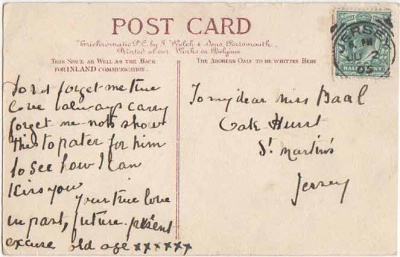 POST CARD
Trichromatic P.C. by J. Welch & Sons, Portsmouth.
Printed at our Works in Belgium
THIS SPACE AS WELL AS THE BACK
FOR INLAND COMMUNICATION.
THE ADDRESS ONLY TO BE WRITTEN HERE
JERSEY
HALFPENNY
Don't forget me true
love I always carry
forget me nots show
this to pater for him
to see how I can
Kiss you
Your true love
in past, future, present
excuse old age xxxxxx
To my dear Miss Baal
Oak Hurst
St Martin's
Jersey